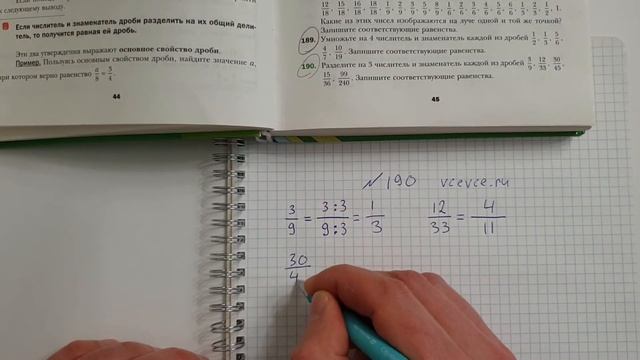 с следующему выводу.
Если числитель и знаменатель дроби разделить на их общий дели-
тель, то получится равная ей дробь.
Эти два утверждения выражают основное свойство дроби.
Пример. Пользуясь основным свойством дроби, найдите значение a,
при котором верно равенство a/8 = 3/4.
44
Какие из этих чисел изображаются на луче одной и той же точкой?
Запишите соответствующие равенства.
189. Умножьте на 4 числитель и знаменатель каждой из дробей 1/2, 1/3, 5/6,
4/7, 10/19. Запишите соответствующие равенства.
190. Разделите на 3 числитель и знаменатель каждой из дробей 3/9, 12/33, 30/45,
15/36, 99/240. Запишите соответствующие равенства.
45
№190 vcevce.ru
3/9 = 3:3/9:3 = 1/3 12/33 = 4/11
30/4